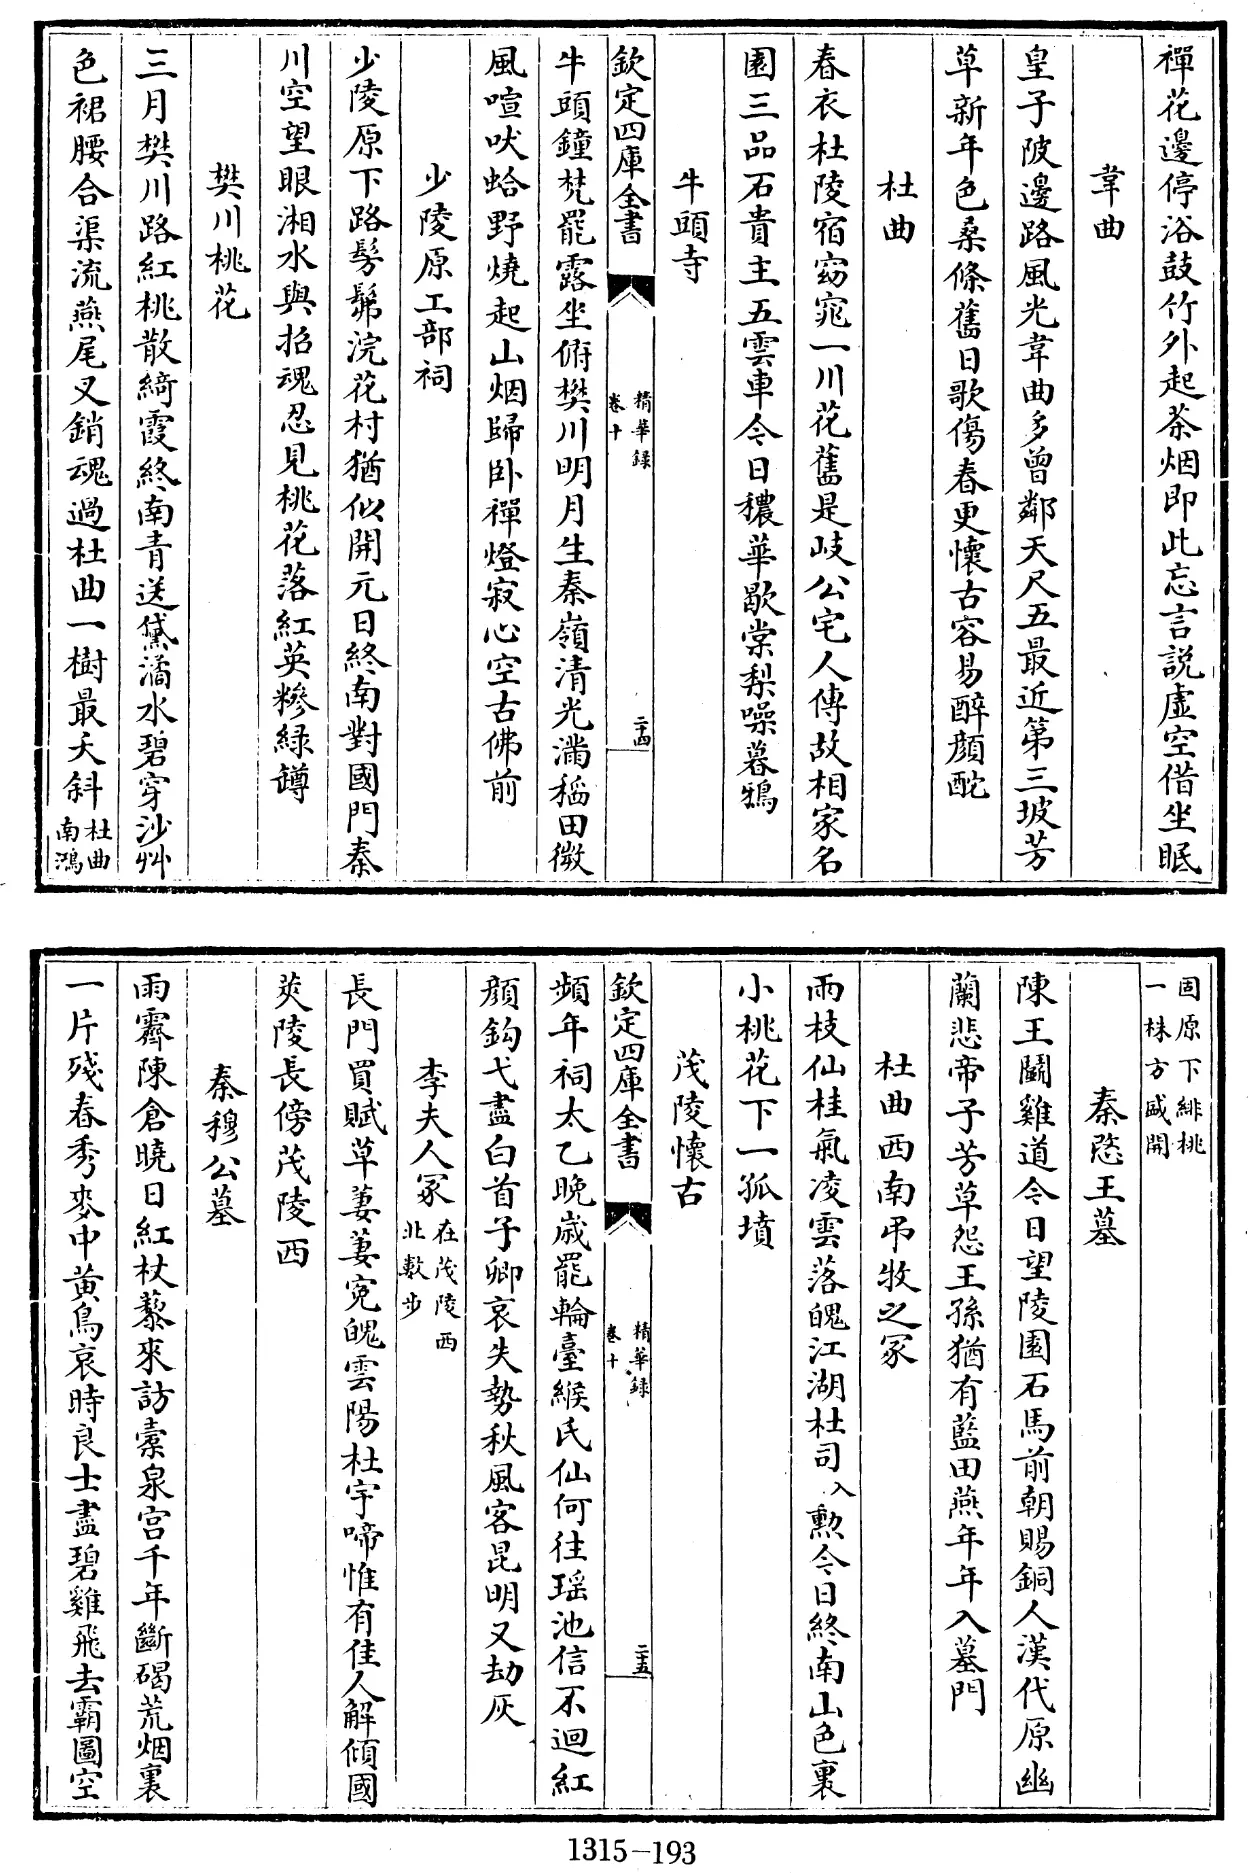 禪花邊停浴鼓竹外起茶烟即此忘言説虚空借坐眠
韋曲
皇子陂邊路風光韋曲多曾鄰天尺五最近第三坡芳
草新年色桑條舊日歌傷春更懷古容易醉顔酡
杜曲
春衣杜陵宿窈窕一川花舊是岐公宅人傳故相家名
園三品石貴主五雲車今日穠華歇棠梨噪暮鴉
牛頭寺
欽定四庫全書
精華録
卷十
二十四
牛頭鐘梵罷露坐俯樊川明月生秦嶺清光滿稻田微
風喧吠蛤野燒起山烟歸卧禪燈寂心空古佛前
少陵原工部祠
少陵原下路髣髴浣花村猶似開元日終南對國門秦
川空望眼湘水與招魂忍見桃花落紅英糝緑罇
樊川桃花
三月樊川路紅桃散綺霞終南青送黛潏水碧穿沙艸
色裙腰合渠流燕尾叉銷魂過杜曲一樹最夭斜
杜曲
南鴻
固原下緋桃
一株方盛開
秦愍王墓
陳王鬭雞道今日望陵園石馬前朝賜銅人漢代原幽
蘭悲帝子芳草怨王孫猶有藍田燕年年入墓門
杜曲西南弔牧之冢
兩枝仙桂氣凌雲落魄江湖杜司
入
勲今日終南山色裏
小桃花下一孤墳
茂陵懷古
欽定四庫全書
精華録
卷十
二十五
頻年祠太乙晩歳罷輪臺緱氏仙何往瑶池信不迴紅
顔鈎弋盡白首子卿哀失勢秋風客昆明又劫灰
李夫人冢
在茂陵西
北數步
長門買賦草萋萋寃魄雲陽杜宇啼惟有佳人解傾國
英陵長傍茂陵西
秦穆公墓
雨霽陳倉曉日紅杖藜來訪橐泉宫千年斷碣荒烟裏
一片殘春秀麥中黄鳥哀時良士盡碧雞飛去霸圖空
1315-193